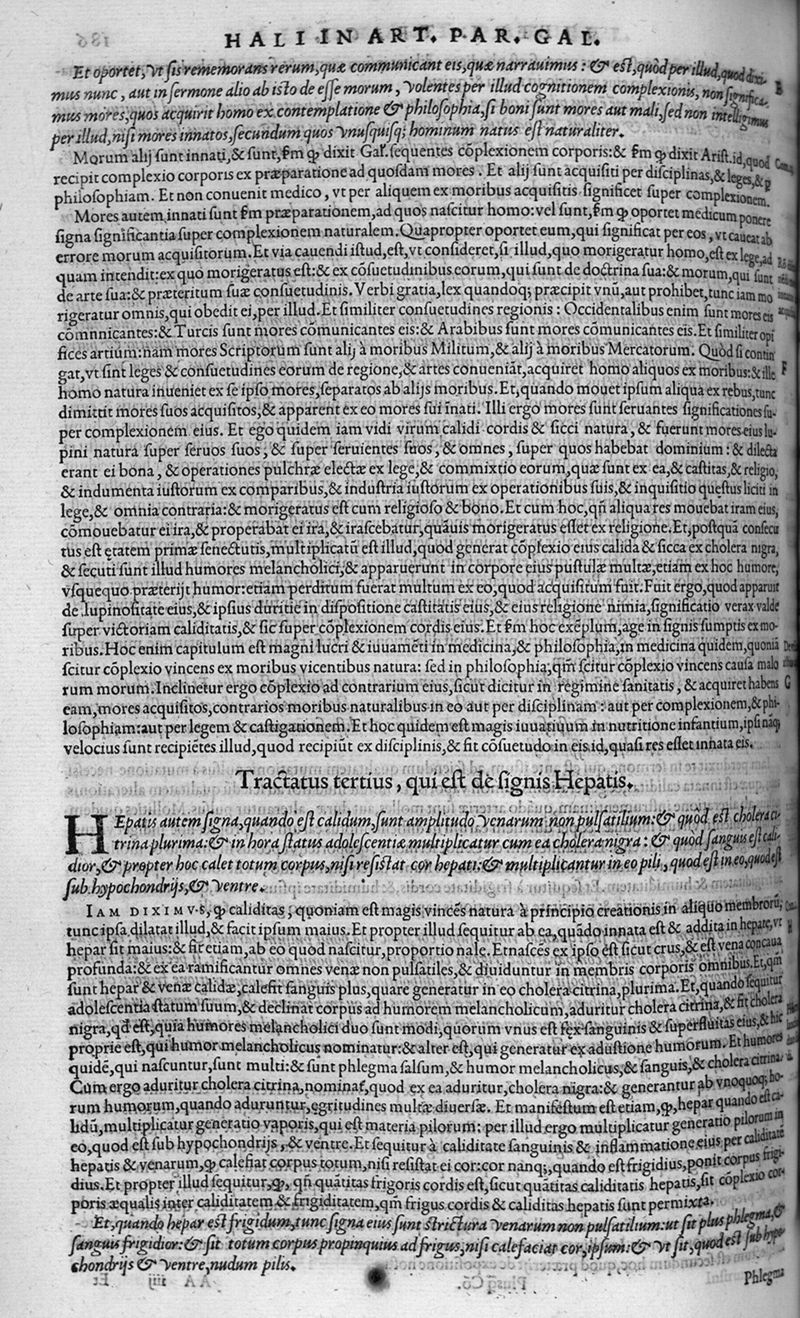 HALI IN ART. PAR. GAL.
Et oportet, vt sis rememorans rerum, quæ communicant eis, quæ narrauimus: & est, quòd per illud, quod
mus nunc, aut in sermone alio ab isto de esse morum, volentes per illud cognitionem complexionis, non significa
mus mores, quos acquirit homo ex contemplatione & philosophia, si boni sunt mores aut mali, sed non intelligimus
per illud, nisi mores innatos, secundum quos vnusquisq; hominum natus est naturaliter.
Morum alij sunt innati, & sunt, fm ꝙ dixit Gal. sequentes cõplexionem corporis: & fm ꝙ dixit Arist. id, quod
recipit complexio corporis ex præparatione ad quosdam mores. Et alij sunt acquisiti per disciplinas, & leges, &
philosophiam. Et non conuenit medico, vt per aliquem ex moribus acquisitis significet super complexionem.
Mores autem innati sunt fm præparationem, ad quos nascitur homo: vel sunt, fm ꝙ oportet medicum ponere
signa significantia super complexionem naturalem. Quapropter oportet eum, qui significat per eos, vt caueat ab
errore morum acquisitorum. Et via cauendi istud, est, vt consideret, si illud, quo morigeratur homo, est ex lege, ad
quam intendit: ex quo morigeratus est: & ex cõsuetudinibus eorum, qui sunt de doctrina sua: & morum, qui sunt
de arte sua: & præteritum suæ consuetudinis. Verbi gratia, lex quandoq; præcipit vnũ, aut prohibet, tunc iam mo
rigeratur omnis, qui obedit ei, per illud. Et similiter consuetudines regionis: Occidentalibus enim sunt mores eis
cõmnnicantes: & Turcis sunt mores cõmunicantes eis: & Arabibus sunt mores cõmunicantes eis. Et similiter opi
fices artium: nam mores Scriptorum sunt alij à moribus Militum, & alij à moribus Mercatorum. Quòd si contin
gat, vt sint leges & consuetudines eorum de regione, & artes conueniãt, acquiret homo aliquos ex moribus: & ille F
homo natura inueniet ex se ipso mores, separatos ab alijs moribus. Et, quando mouet ipsum aliqua ex rebus, tunc
dimittit mores suos acquisitos, & apparent ex eo mores sui inati. Illi ergo mores sunt seruantes significationes su-
per complexionem eius. Et ego quidem iam vidi virum calidi cordis & sicci natura, & fuerunt mores eius lu-
pini natura super seruos suos, & super seruientes suos, & omnes, super quos habebat dominium: & dilecta
erant ei bona, & operationes pulchræ electæ ex lege, & commixtio eorum, quæ sunt ex ea, & castitas, & religio,
& indumenta iustorum ex comparibus, & industria iustorum ex operationibus suis, & inquisitio quęstus liciti in
lege, & omnia contraria: & morigeratus est cum religioso & bono. Et cum hoc, qñ aliqua res mouebat iram eius,
cõmouebatur ei ira, & properabat ei ira, & irascebatur, quãuis morigeratus esset ex religione. Et, postquã consecu
tus est ętatem primæ senectutis, multiplicatũ est illud, quod generat cõplexio eius calida & sicca ex cholera nigra,
& secuti sunt illud humores melancholici, & apparuerunt in corpore eius pustulæ multæ, etiam ex hoc humore,
vsquequo præterijt humor: etiam perditum fuerat multum ex eo, quod acquisitum fuit. Fuit ergo, quod apparuit
de lupinositate eius, & ipsius duritie in dispositione castitatis eius, & eius religione nimia, significatio verax valde
super victoriam caliditatis, & sic super cõplexionem cordis eius. Et fm hoc exẽplum, age in signis sumptis ex mo-
ribus. Hoc enim capitulum est magni lucri & iuuamẽti in medicina, & philosophia, in medicina quidem, quoniã
scitur cõplexio vincens ex moribus vicentibus natura: sed in philosophia, qm̃ scitur cõplexio vincens causa malo
rum morum. Inclinetur ergo cõplexio ad contrarium eius, sicut dicitur in regimine sanitatis, & acquiret habens G
eam, mores acquisitos, contrarios moribus naturalibus in eo aut per disciplinam: aut per complexionem, & phi-
losophiam: aut per legem & castigationem. Et hoc quidem est magis iuuatiuum in nutritione infantium, ipsi nãq;
velocius sunt recipiẽtes illud, quod recipiũt ex disciplinis, & fit cõsuetudo in eis id, quasi res esset innata eis.
Tractatus tertius, qui est de signis Hepatis.
HEpatis autem signa, quando est calidum, sunt amplitudo venarum non pulsatilium: & quòd est cholera ci-
trina plurima: & in hora status adolescentiæ multiplicatur cum ea cholera nigra: & quòd sanguis est cali-
dior, & propter hoc calet totum corpus, nisi resistat cor hepati: & multiplicantur in eo pili, quod est in eo, quod est
sub hypochondrijs, & ventre.
IAM DIXIMVS, ꝙ caliditas, quoniam est magis vincẽs natura à principio creationis in aliquo membrorũ,
tunc ipsa dilatat illud, & facit ipsum maius. Et propter illud sequitur ab ea, quãdo innata est & addita in hepate, vt
hepar sit maius: & fit etiam, ab eo quòd nascitur, proportionale. Et nascẽs ex ipso est sicut crus, & est vena concaua
profunda: & ex ea ramificantur omnes venæ non pulsatiles, & diuiduntur in membris corporis omnibus. Et, qm̃
sunt hepar & venæ calidæ, calefit sanguis plus, quare generatur in eo cholera citrina, plurima. Et, quando sequitur
adolescentia statum suum, & declinat corpus ad humorem melancholicum, aduritur cholera citrina, & fit cholera
nigra, qd̃ est, quia humores melancholici duo sunt modi, quorum vnus est fęx sanguinis & superfluitas eius, & hic
proprie est, qui humor melancholicus nominatur: & alter est, qui generatur ex adustione humorum. Et humores
quidẽ, qui nascuntur, sunt multi: & sunt phlegma salsum, & humor melancholicus, & sanguis, & cholera citrina.
Cum ergo aduritur cholera citrina, nominat̃, quod ex ea aduritur, cholera nigra: & generantur ab vnoquoq; ho-
rum humorum, quando aduruntur, ęgritudines multæ diuersæ. Et manifestum est etiam, ꝙ, hepar quando est ca-
lidũ, multiplicatur generatio vaporis, qui est materia pilorum: per illud ergo multiplicatur generatio pilorum in
eo, quod est sub hypochondrijs, & ventre. Et sequitur à caliditate sanguinis & inflammatione eius per caliditatẽ
hepatis & venarum, ꝙ calefiat corpus totum, nisi resistat ei cor: cor nanq;, quando est frigidius, ponit corpus frigi-
dius. Et propter illud sequitur, ꝙ, qñ quãtitas frigoris cordis est, sicut quãtitas caliditatis hepatis, fit cõplexio cor-
poris æqualis inter caliditatem & frigiditatem, qm̃ frigus cordis & caliditas hepatis sunt permixta.
Et, quando hepar est frigidum, tunc signa eius sunt strictura venarum non pulsatilium: ut sit plus phlegma, &
sanguis frigidior: & sit totum corpus propinquius ad frigus, nisi calefaciat cor, ipsum: & vt sit, quod est sub hypo-
chondrijs & ventre, nudum pilis.
Phlegma